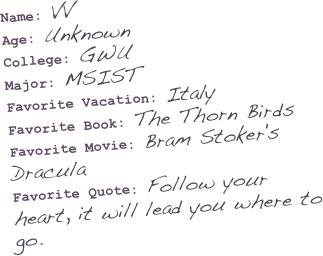 Name: W
Age: Unknown
College: GWU
Major: MSIST
Favorite Vacation: Italy
Favorite Book: The Thorn Birds
Favorite Movie: Bram Stoker's
Dracula
Favorite Quote: Follow your
heart, it will lead you where to
go.